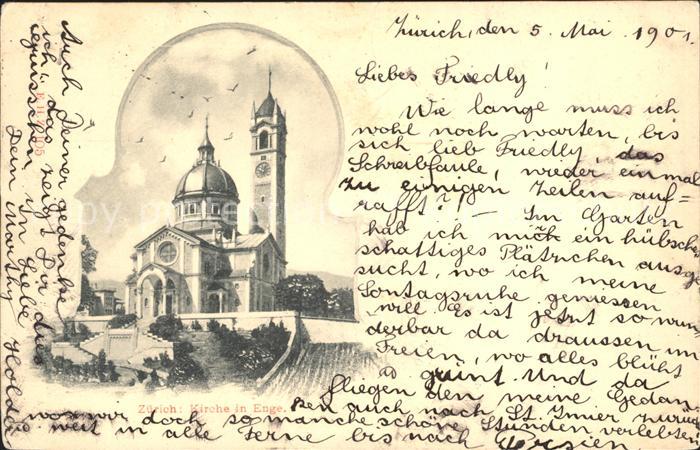 Zürich, den 5. Mai 1901.
Liebes Friedly!
Wie lange muss ich
wohl noch warten, bis
sich lieb Friedly, das
Schreibfaule, wieder einmal
zu einigen Zeilen auf-
rafft?! — Im Garten
hab ich mich ein hübsch
schattiges Plätzchen ausge
sucht, wo ich meine
Sontagsruhe geniessen
will. Es ist jetzt so wun
derbar da draussen im
Freien, wo alles blüht
u grünt. Und da
fliegen den meine Gedan
ken auch nach St. Imier zurück
wo wir doch so manche schöne Stunden verlebten
u weit in alle Ferne bis nach
Auch Deiner gedenke
ich, das zeigt Dir dies
In Liebe
Dein
Zürich: Kirche in Enge.